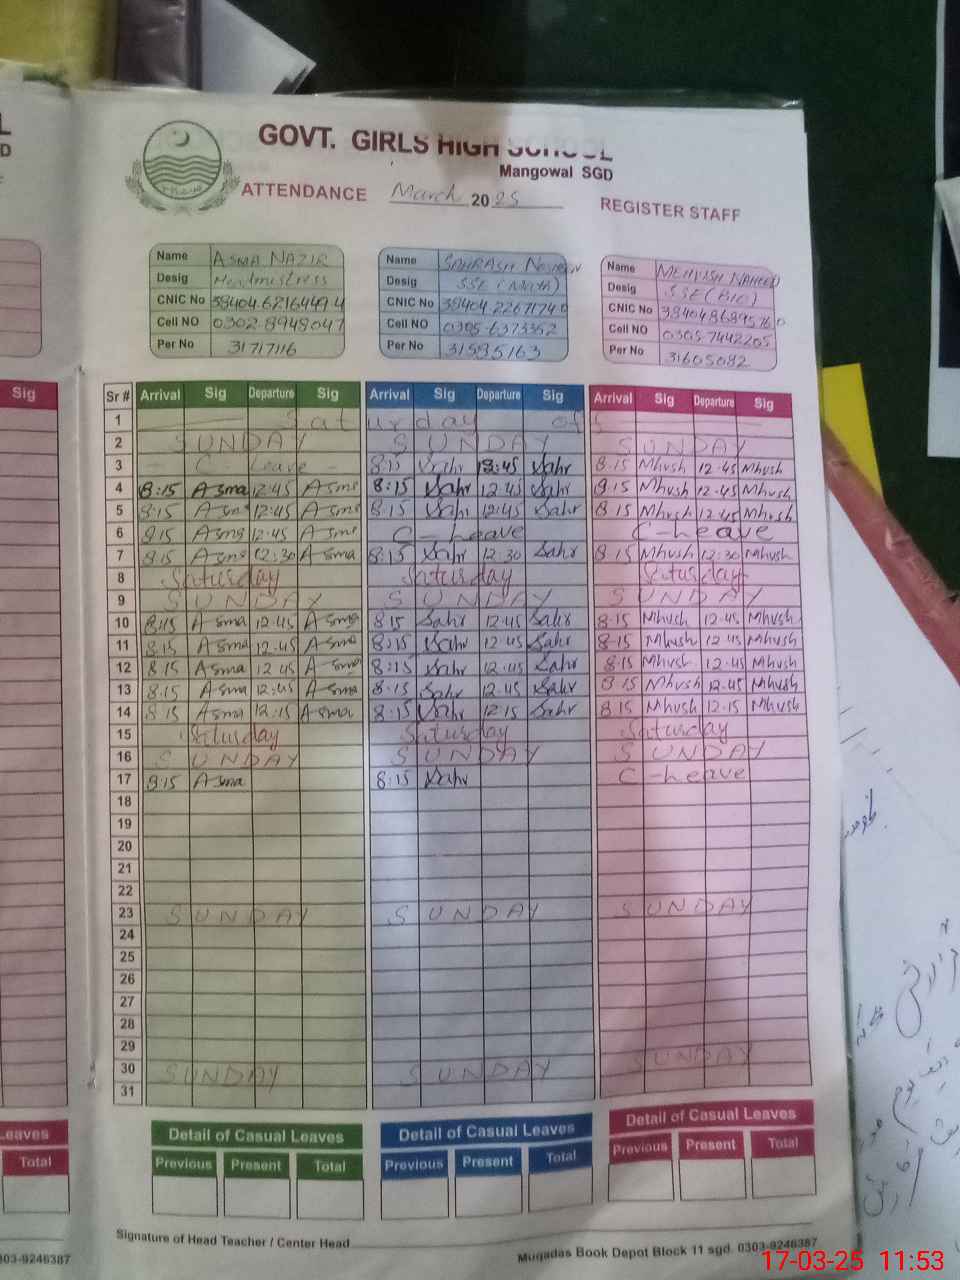 GOVT. GIRLS HIGH SCHOOL
Mangowal SGD
ATTENDANCE March 2025 REGISTER STAFF
Name ASMA NAZIR Name Name MEHVISH NAHEED
Desig Headmistress Desig SSE (MATH) Desig SSE (BIO)
CNIC No CNIC No CNIC No
Cell NO 0302-8948047 Cell NO 0305-6373352 Cell NO 0305-7442205
Per No 31717116 Per No 31595163 Per No 31605082
Sig
Sr # Arrival Sig Departure Sig Arrival Sig Departure Sig Arrival Sig Departure Sig
1 Saturday off
2 SUNDAY SUNDAY SUNDAY
3 C-Leave 8:15 Sahr 12:45 Sahr 8:15 Mhvsh 12:45 Mhvsh
4 8:15 Asma 12:45 Asma 8:15 Sahr 12:45 Sahr 8:15 Mhvsh 12:45 Mhvsh
5 8:15 Asma 12:45 Asma 8:15 Sahr 12:45 Sahr 8:15 Mhvsh 12:45 Mhvsh
6 8:15 Asma 12:45 Asma C-Leave C-Leave
7 8:15 Asma 12:30 Asma 8:15 Sahr 12:30 Sahr 8:15 Mhvsh 12:30 Mhvsh
8 Saturday Saturday Saturday
9 SUNDAY SUNDAY SUNDAY
10 8:15 Asma 12:45 Asma 8:15 Sahr 12:45 Sahr 8:15 Mhvsh 12:45 Mhvsh
11 8:15 Asma 12:45 Asma 8:15 Sahr 12:45 Sahr 8:15 Mhvsh 12:45 Mhvsh
12 8:15 Asma 12:45 Asma 8:15 Sahr 12:45 Sahr 8:15 Mhvsh 12:45 Mhvsh
13 8:15 Asma 12:45 Asma 8:15 Sahr 12:45 Sahr 8:15 Mhvsh 12:45 Mhvsh
14 8:15 Asma 12:15 Asma 8:15 Sahr 12:15 Sahr 8:15 Mhvsh 12:15 Mhvsh
15 Saturday Saturday Saturday
16 SUNDAY SUNDAY SUNDAY
17 8:15 Asma 8:15 Sahr C-Leave
18
19
20
21
22
23 SUNDAY SUNDAY SUNDAY
24
25
26
27
28
29
30 SUNDAY SUNDAY SUNDAY
31
Leaves Detail of Casual Leaves Detail of Casual Leaves Detail of Casual Leaves
Total Previous Present Total Previous Present Total Previous Present Total
Signature of Head Teacher / Center Head
303-9246387 Muqadas Book Depot Block 11 sgd. 0303-9246387
17-03-25 11:53